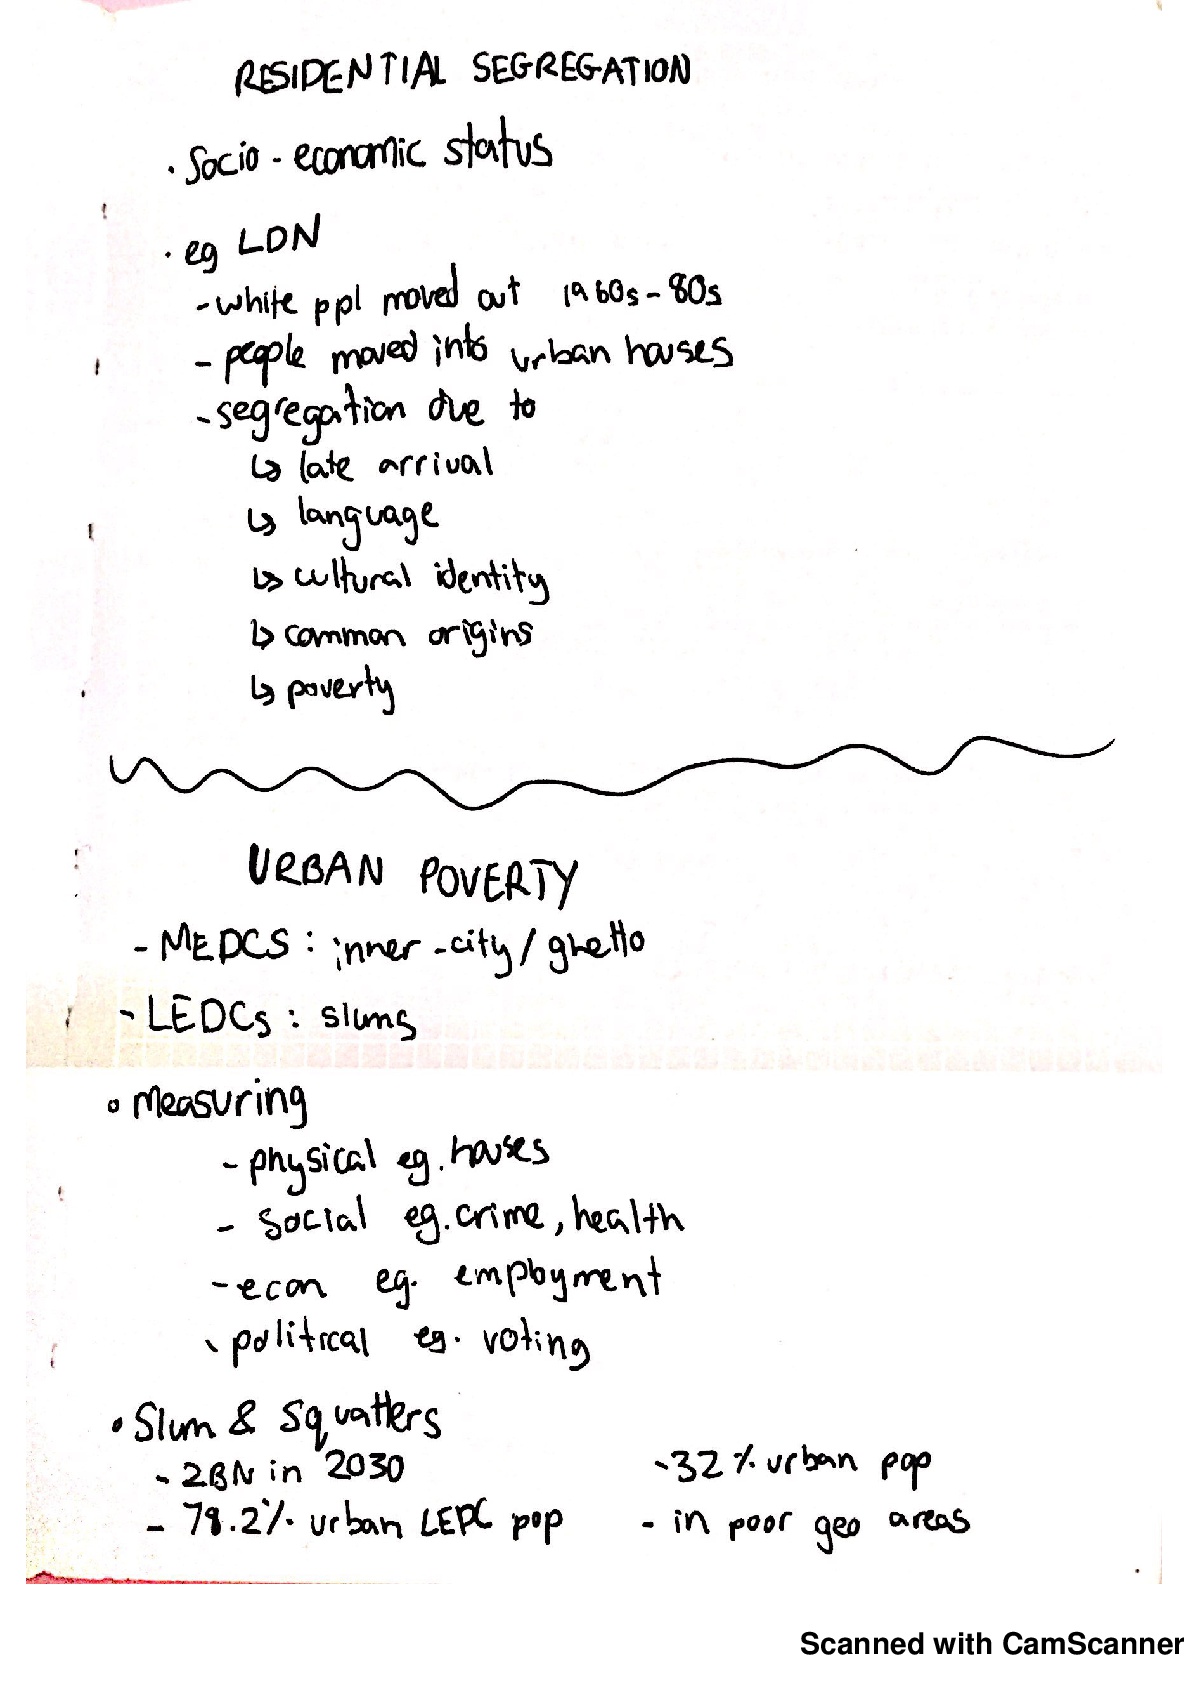 RESIDENTIAL SEGREGATION
• Socio - economic status
• eg LDN
- white ppl moved out 1960s - 80s
- people moved into urban houses
- segregation due to
↳ late arrival
↳ language
↳ cultural identity
↳ common origins
↳ poverty
URBAN POVERTY
- MEDCS : inner - city / ghetto
- LEDCs : slums
• Measuring
- physical eg. houses
- social eg. crime, health
- econ eg. employment
- political eg. voting
• Slum & Squatters
- 2BN in 2030
- 78.2% urban LEDC pop
- 32% urban pop
- in poor geo areas
Scanned with CamScanner